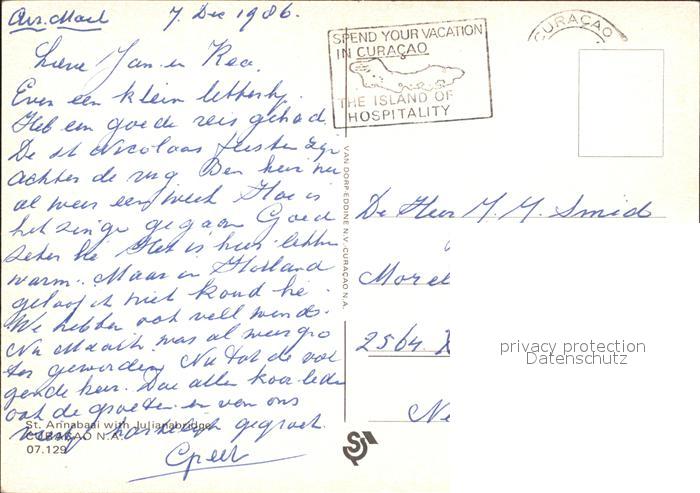 Air. Mail 7 Dec 1986.
Lieve Jan en Rea.
Even een klein lettertj.
Heb een goede reis gehad.
De st Nicolaas feesten zijn
achter de rug Ben hier nu
al weer een week Hoe is
het zingen gegaan Goed
zeker hé Het is hier lekker
warm. Maar in Holland
geloof ik niet koud hé.
We hebben ook veel wind.
Nu was al weer gro
ter geworden Nu tot de vol
gende keer. Doe allen koor leden
ook de groeten en van ons
hartelijk gegroet.
Greet
St. Annabaai with Julianabridge
CURAÇAO N.A.
07.129
SPEND YOUR VACATION
IN CURAÇAO
THE ISLAND OF
HOSPITALITY
CURAÇAO
VAN DORP-EDDINE N.V. CURAÇAO N.A.
De Heer M. M. Smid
More
2564
Ne
privacy protection
Datenschutz